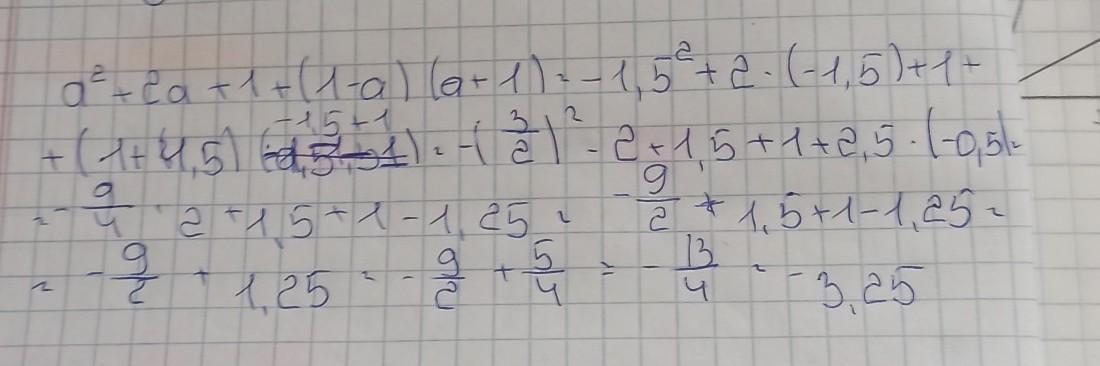 a² + 2a + 1 + (1-a) (a+1) = -1,5² + 2 · (-1,5) + 1 +
-1,5+1
+ (1+1,5) (-1,5+1) = -(3/2)² - 2 + 1,5 + 1 + 2,5 · (-0,5) =
= - 9/4 · 2 + 1,5 + 1 - 1,25 = - 9/2 + 1,5 + 1 - 1,25 =
= - 9/2 + 1,25 = - 9/2 + 5/4 = - 13/4 = - 3,25